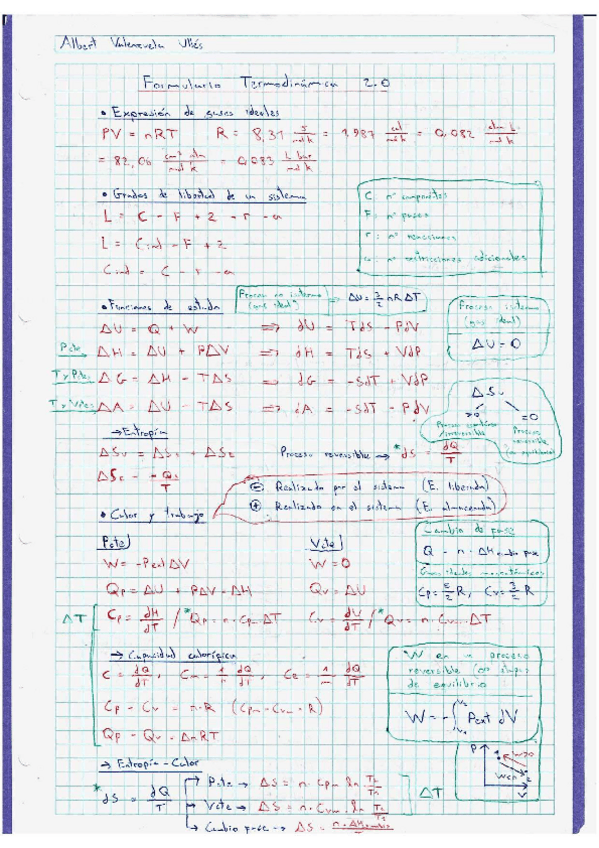 Albert Valenzuela
Formulario Termodinámica 2.0
• Expresión de gases ideales
PV = nRT R = 8,31 J/mol k = 1,987 cal/mol k = 0,082 atm L/mol k
= 82,06 cm³ atm/mol k = 0,083 L bar/mol k
• Grados de libertad de un sistema
L = C - F + 2 - r - a
L = Cind - F + 2
Cind = C - r - a
C: nº componentes
F: nº fases
r: nº reacciones
a: nº restricciones adicionales
• Funciones de estado
Proceso no isotermo (gas ideal) → ΔU = 3/2 nRΔT
Proceso isotermo (gas ideal)
ΔU = 0
ΔU = Q + W ⇒ dU = TdS - PdV
P cte ΔH = ΔU + PΔV ⇒ dH = TdS + VdP
T y P ctes ΔG = ΔH - TΔS ⇒ dG = -SdT + VdP
T y V ctes ΔA = ΔU - TΔS ⇒ dA = -SdT - PdV
ΔSu
>0 =0
Proceso
irreversible
Proceso
reversible
→ Entropía
ΔSu = ΔSs + ΔSe Proceso reversible → *dS = dQ/T
ΔSe = -Qs/T
⊖ Realizado por el sistema (E. liberada)
⊕ Realizado en el sistema (E. almacenada)
• Calor y trabajo
Cambio de fase
Q = n · ΔH cambio fase
P cte V cte
W = -Pext ΔV W = 0
Gases ideales monoatómicos
Cp = 5/2 R, Cv = 3/2 R
Qp = ΔU + PΔV = ΔH Qv = ΔU
ΔT Cp = dH/dT / *Qp = n · Cpm · ΔT Cv = dU/dT / *Qv = n · Cvm · ΔT
→ Capacidad calorífica
C = dQ/dT, Cm = 1/n dQ/dT, Ce = 1/m · dQ/dT
Cp - Cv = n·R (Cpm - Cvm = R)
Qp - Qv = ΔnRT
*W en un proceso
reversible (o etapas
de equilibrio
W = -∫ Pext dV
V₂
V₁
P
W>0
W<0
V
→ Entropía - Calor
*dS = dQ/T
→ P cte → ΔS = n · Cpm · ln T₂/T₁
→ V cte → ΔS = n · Cvm · ln T₂/T₁
ΔT
→ Cambio fase → ΔS = n · ΔH cambio